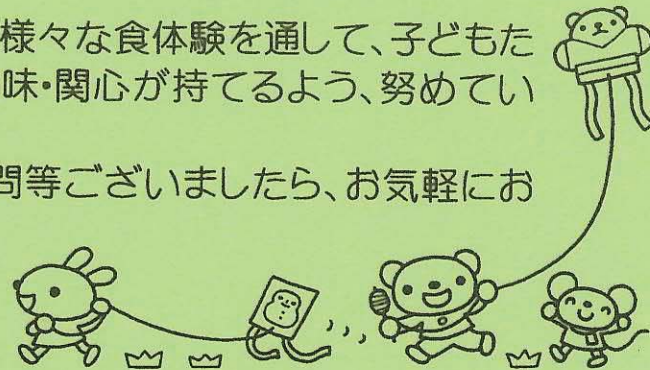 様々な食体験を通して、子どもた
味・関心が持てるよう、努めてい
問等ございましたら、お気軽にお